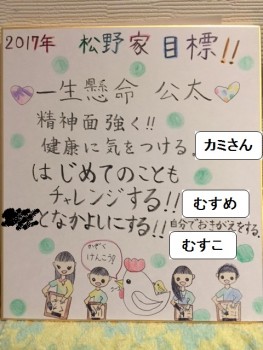 2017年 松野家 目標!!
一生懸命 公太
精神面強く!!
健康に気をつける。
カミさん
はじめてのことも
チャレンジする!!
むすめ
となかよしにする!!
自分でおきがえをする。
むすこ
かぞく
けんこう